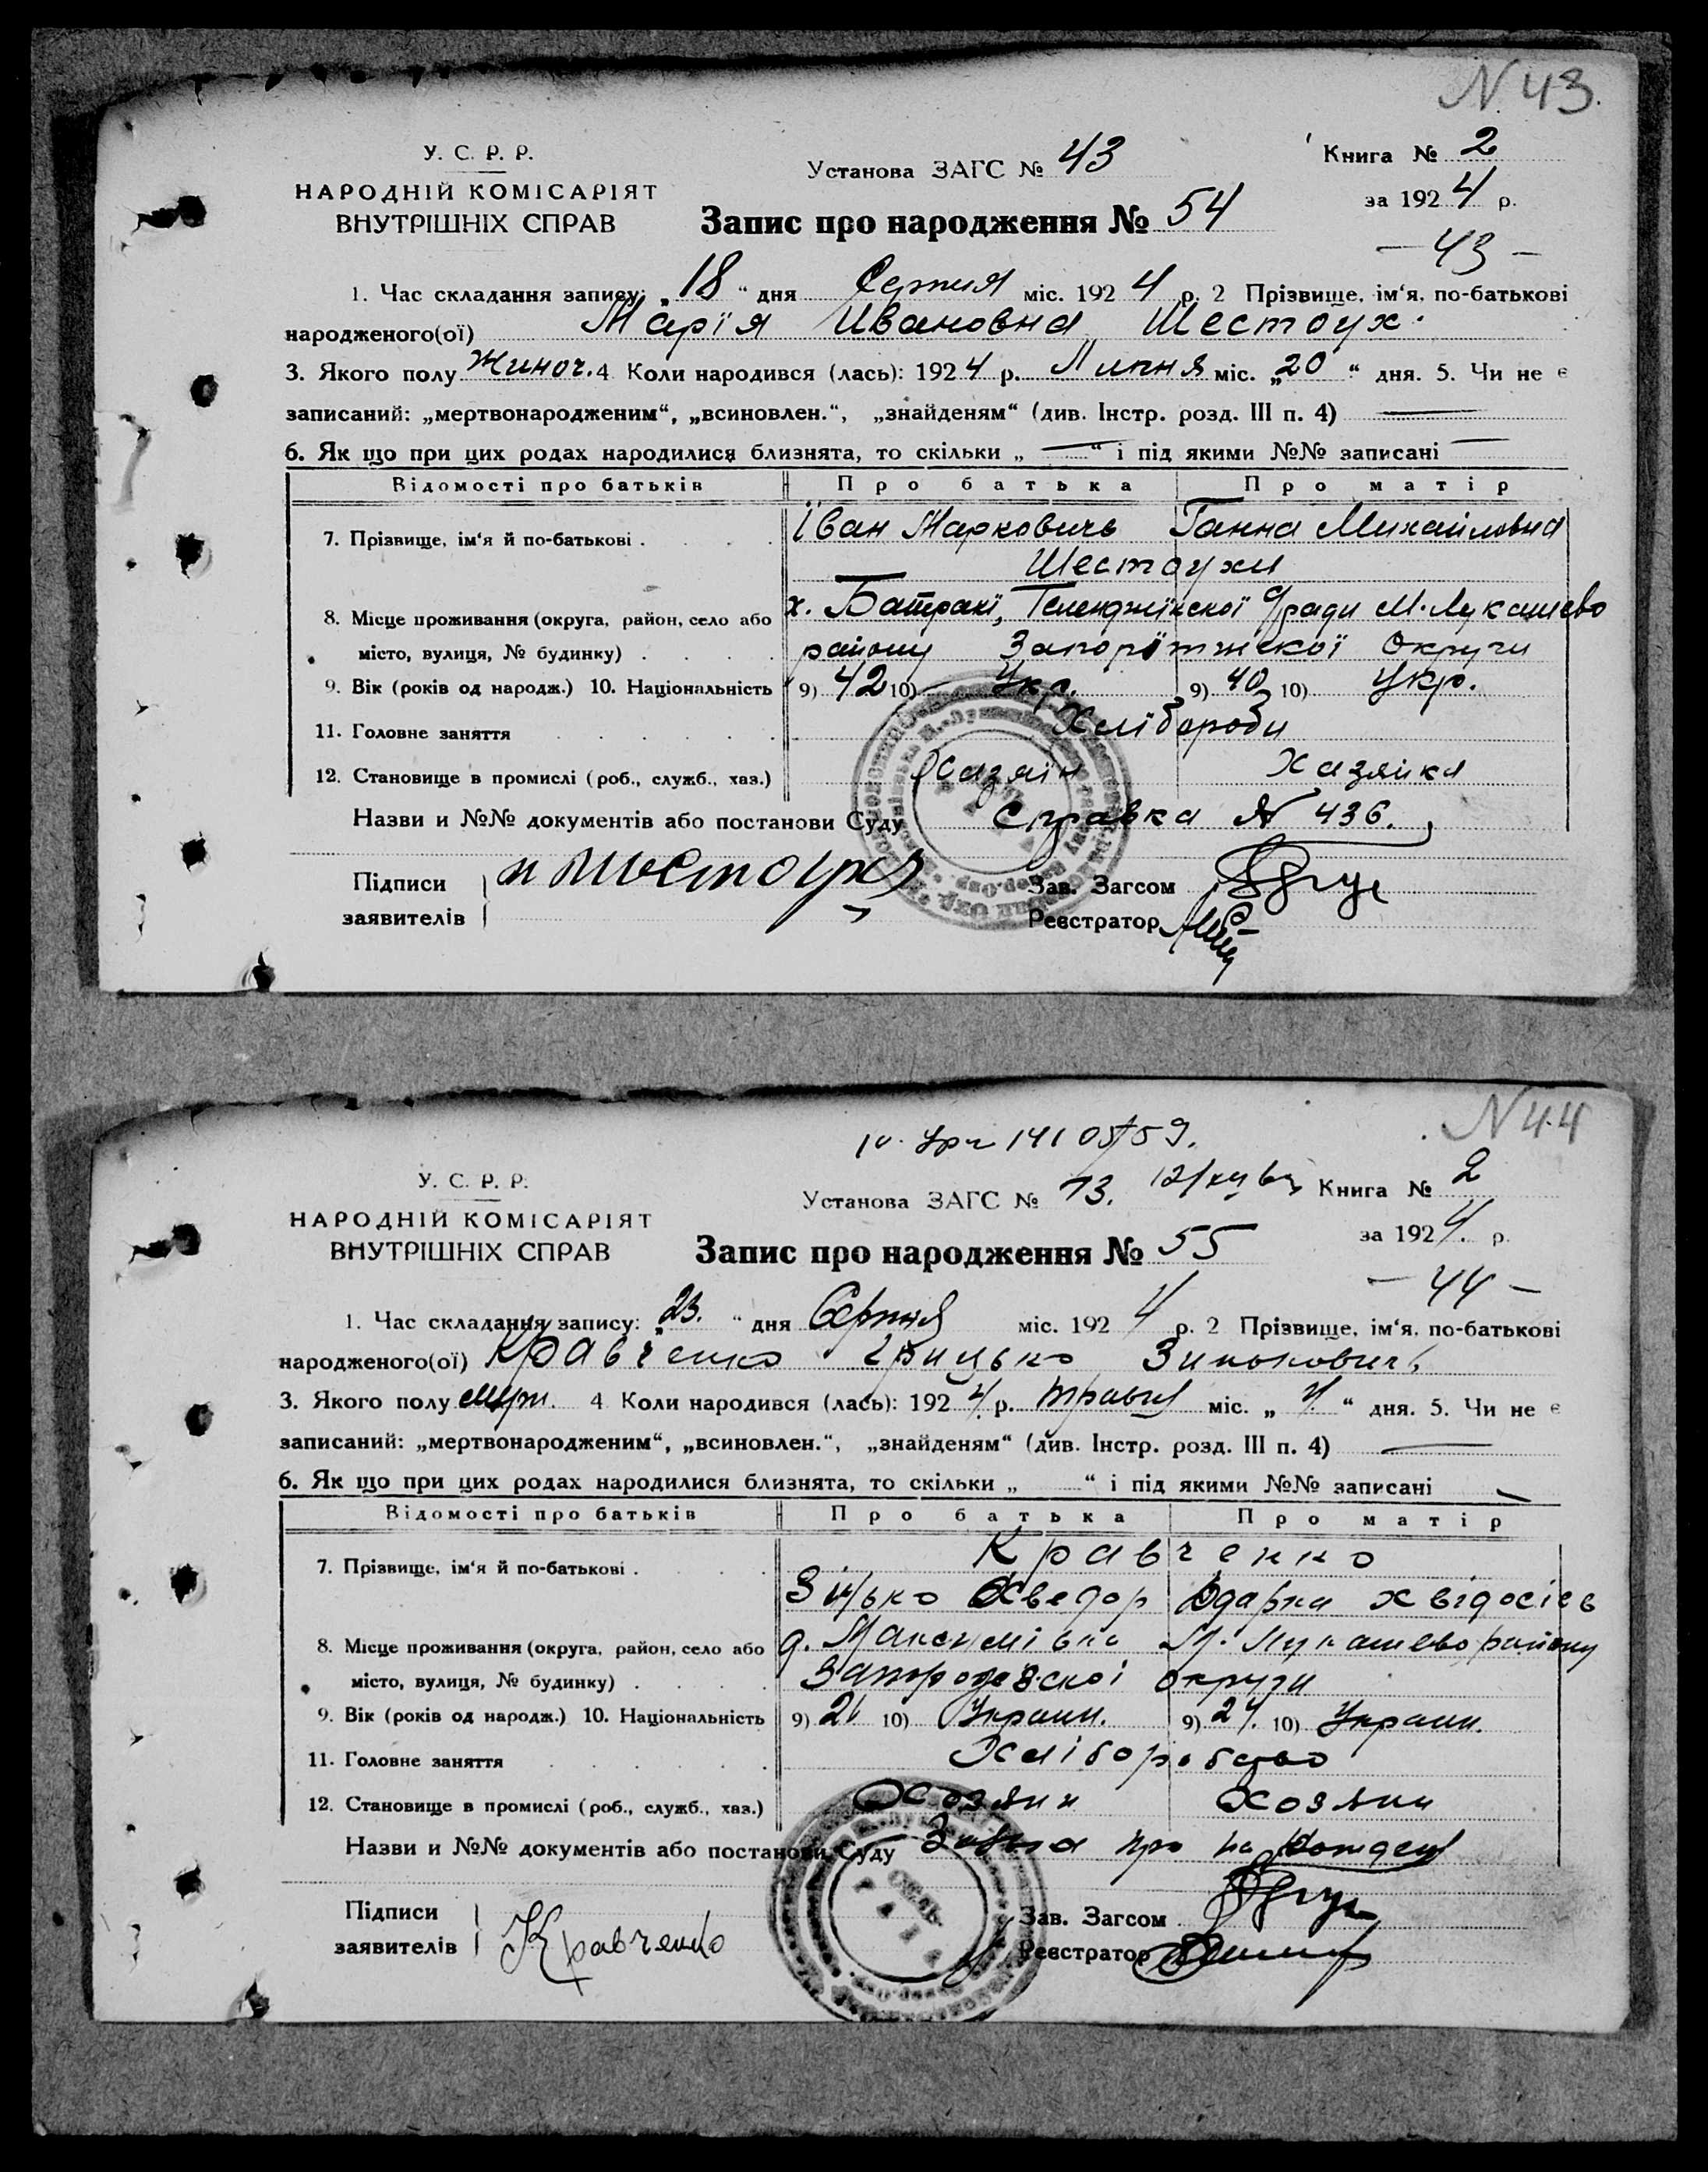 N 43.
У. С. Р. Р.
НАРОДНІЙ КОМІСАРІЯТ
ВНУТРІШНІХ СПРАВ
Установа ЗАГС № 43
Книга № 2
за 1924 р.
Запис про народження № 54
— 43 —
1. Час складання запису: „18“ дня Серпня міс. 1924 р. 2 Прізвище, ім‘я, по-батькові
народженого(ої) Марїя Ивановна Шестоух
3. Якого полу Жиноч. 4 Коли народився (лась): 1924 р. Липня міс. „20“ дня. 5. Чи не є
записаний: „мертвонародженим“, „всиновлен.“, „знайденям“ (див. Інстр. розд. III п. 4) —
6. Як що при цих родах народилися близнята, то скільки „—“ і під якими №№ записані —
Відомості про батьків Про батька Про матір
7. Прізвище, ім‘я й по-батькові . Їван Марковичь Ганна Михайловна
Шестоухи
8. Місце проживання (округа, район, село або х. Батракї, с/ради М-Лукашево
місто, вулиця, № будинку) . району Запорїтжскої Округи
9. Вік (років од народж.) 10. Національність 9) 42 10) Укр. 9) 40 10) Укр.
11. Головне заняття Хлїбороби
12. Становище в промислі (роб., служб., хаз.) Хазяїн Хазяйка
Назви и №№ документів або постанови Суду Справка № 436.
Підписи
заявителів
и Шостоуха
Зав. Загсом
Реєстратор
N 44
У. С. Р. Р.
НАРОДНІЙ КОМІСАРІЯТ
ВНУТРІШНІХ СПРАВ
Установа ЗАГС № 13.
Книга № 2
за 1924. р.
Запис про народження № 55
— 44 —
1. Час складання запису: „23.“ дня Серпня міс. 1924 р. 2 Прізвище, ім‘я, по-батькові
народженого(ої) Кравченко Грицько Зинькович
3. Якого полу муж. 4 Коли народився (лась): 1924. р. травня міс. „4.“ дня. 5. Чи не є
записаний: „мертвонародженим“, „всиновлен.“, „знайденям“ (див. Інстр. розд. III п. 4) —
6. Як що при цих родах народилися близнята, то скільки „ “ і під якими №№ записані —
Відомості про батьків Про батька Про матір
7. Прізвище, ім‘я й по-батькові . Кравченко
Зінько Хведор Одарка Хвідосіев
8. Місце проживання (округа, район, село або д. Максимівка М-Лукашево району
місто, вулиця, № будинку) . округи
9. Вік (років од народж.) 10. Національність 9) 21 10) Украин. 9) 24. 10) Украин.
11. Головне заняття Хліборобство
12. Становище в промислі (роб., служб., хаз.) Хозяин Хозяин
Назви и №№ документів або постанови Суду про
Підписи
заявителів
Кравченко
Зав. Загсом
Реєстратор